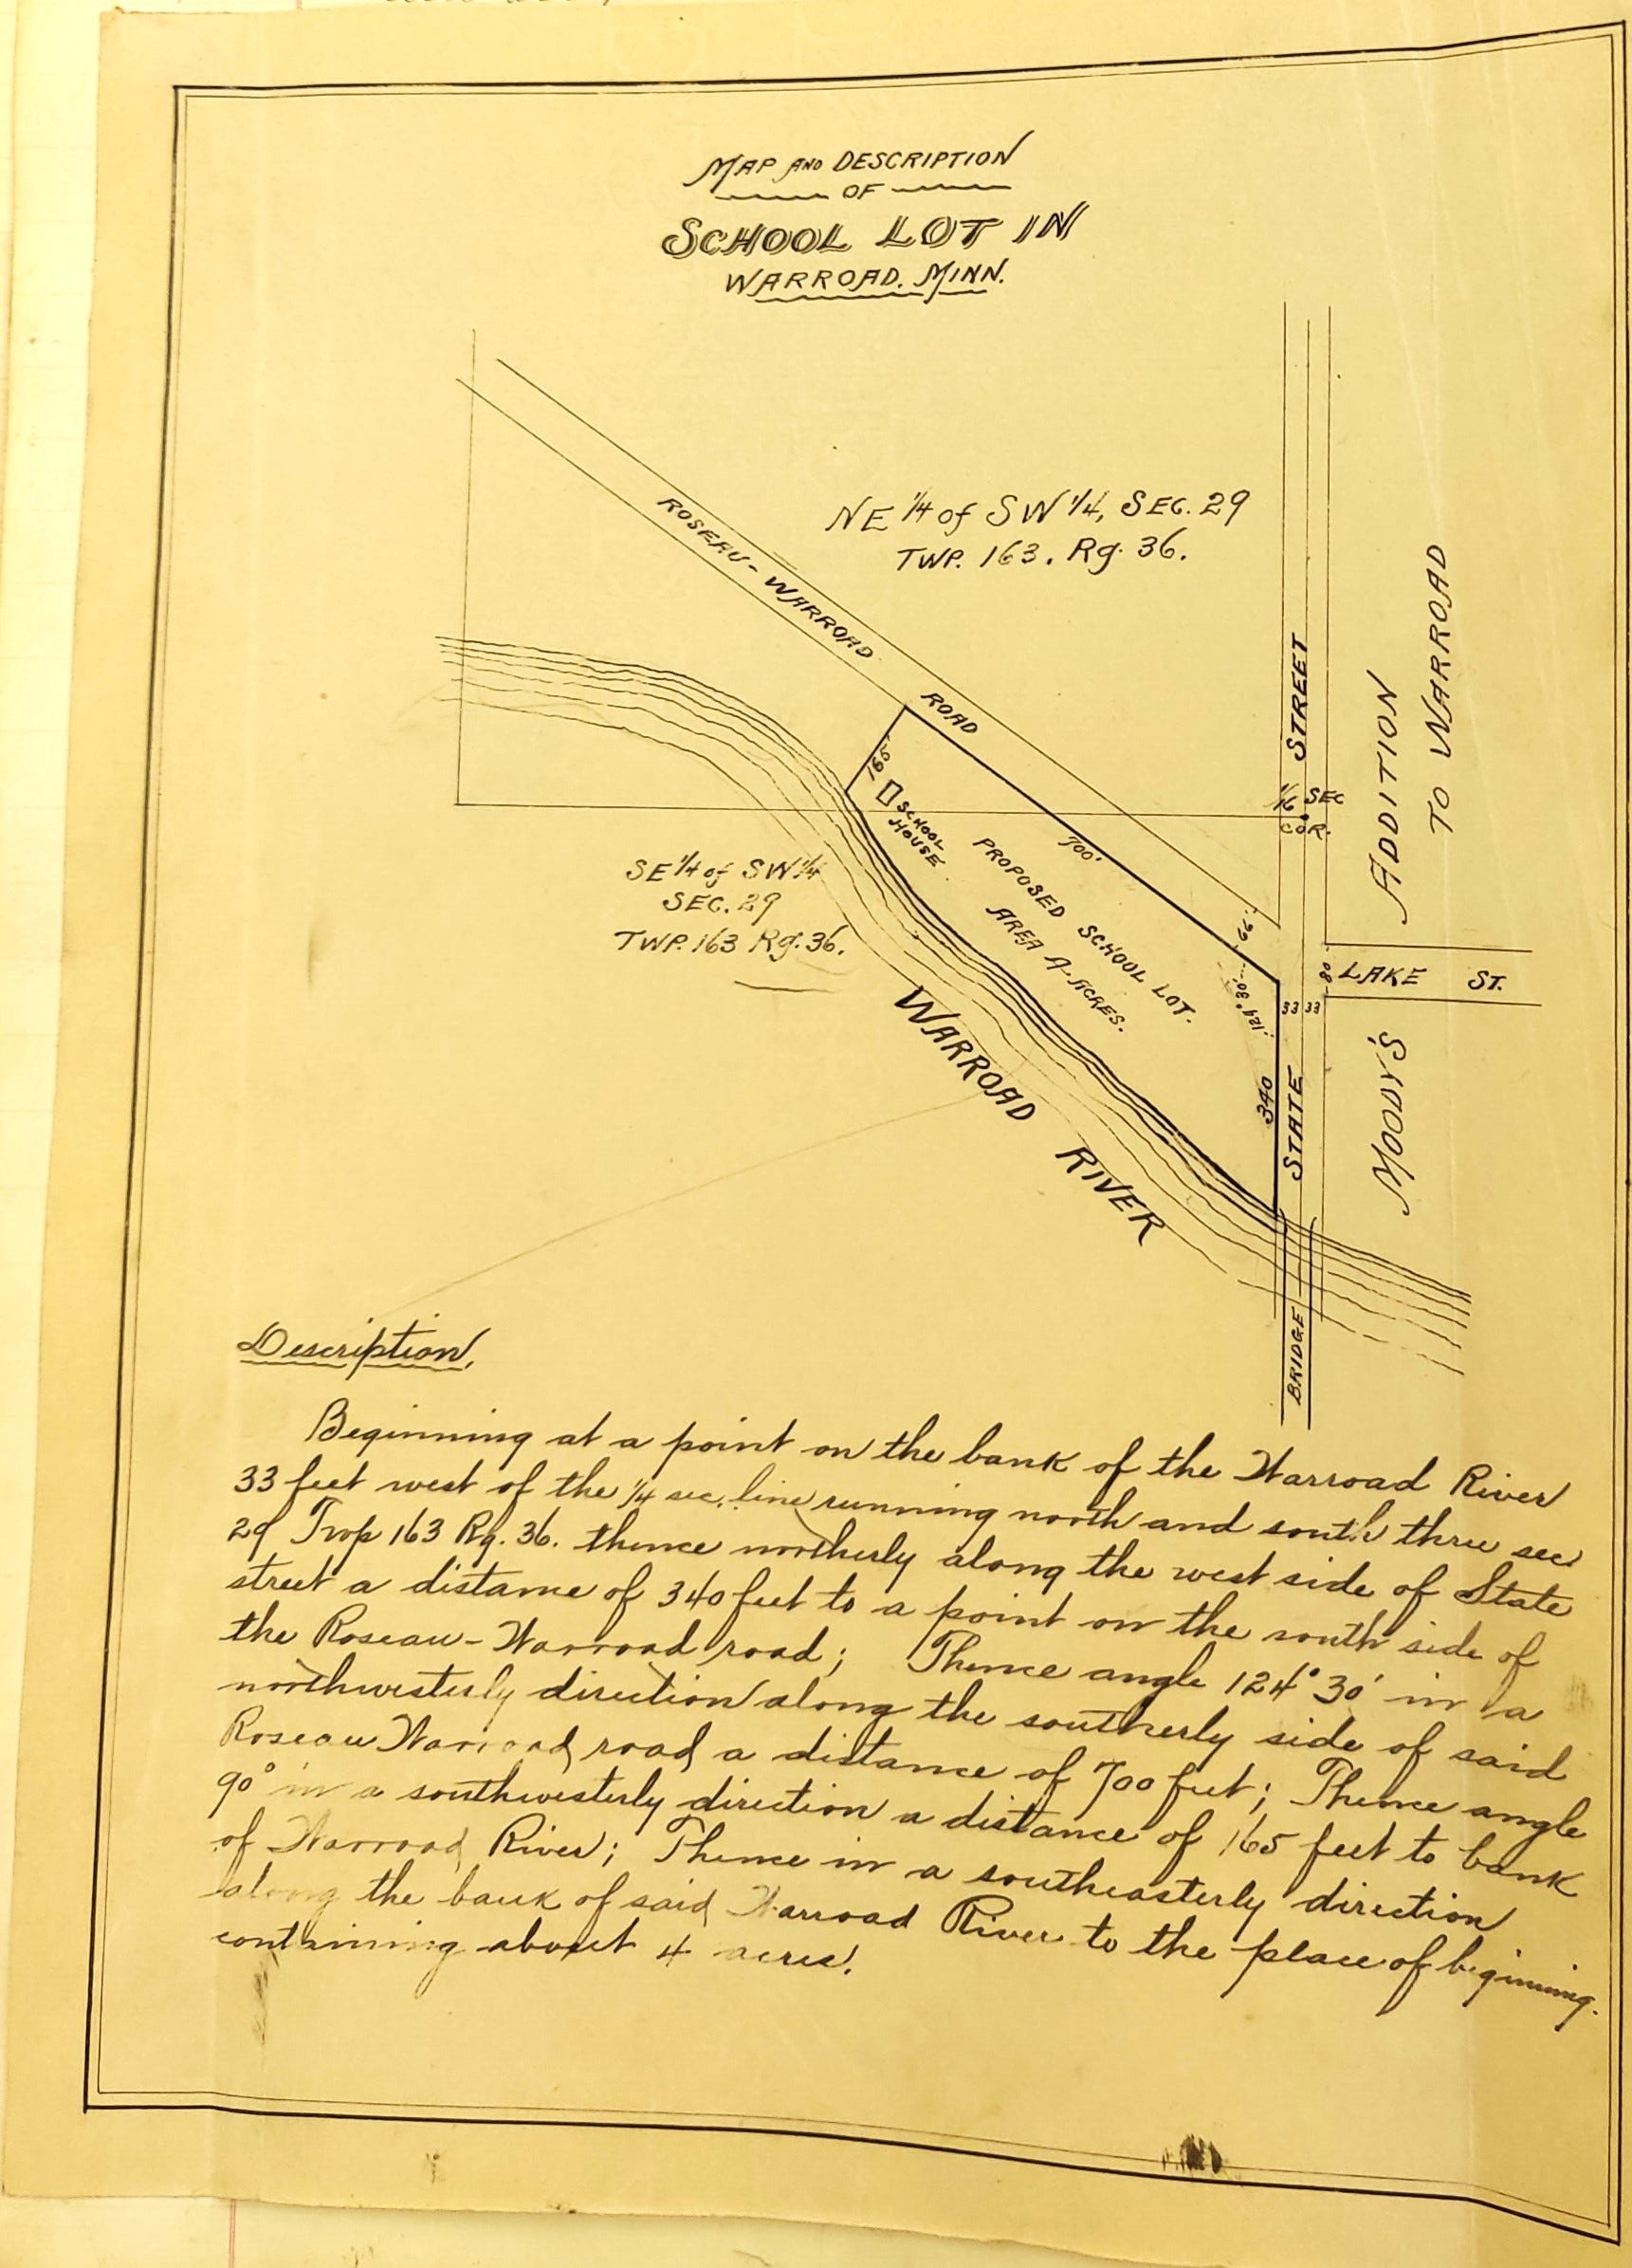 MAP AND DESCRIPTION
OF
SCHOOL LOT IN
WARROAD. MINN.
NE 1/4 of SW 1/4, SEC. 29
TWP. 163. Rg. 36.
ROSEAU - WARROAD ROAD
STREET
ADDITION
TO WARROAD
165'
SCHOOL
HOUSE
1/16 SEC
COR.
700'
PROPOSED SCHOOL LOT.
AREA 4-ACRES.
SE 1/4 of SW 1/4
SEC. 29
TWP. 163 Rg. 36.
66'
80'
LAKE ST.
124°30'
33 33
340
STATE
MOODY'S
WARROAD RIVER
BRIDGE
Description.
Beginning at a point on the bank of the Warroad River
33 feet west of the 1/4 sec. line running north and south thru sec
29 Twp 163 Rg. 36. thence northerly along the west side of State
street a distance of 340 feet to a point on the south side of
the Roseau-Warroad road; Thence angle 124° 30' in a
northwesterly direction along the southerly side of said
Roseau Warroad road a distance of 700 feet; Thence angle
90° in a southwesterly direction a distance of 165 feet to bank
of Warroad River; Thence in a southeasterly direction
along the bank of said Warroad River to the place of beginning.
containing about 4 acres.